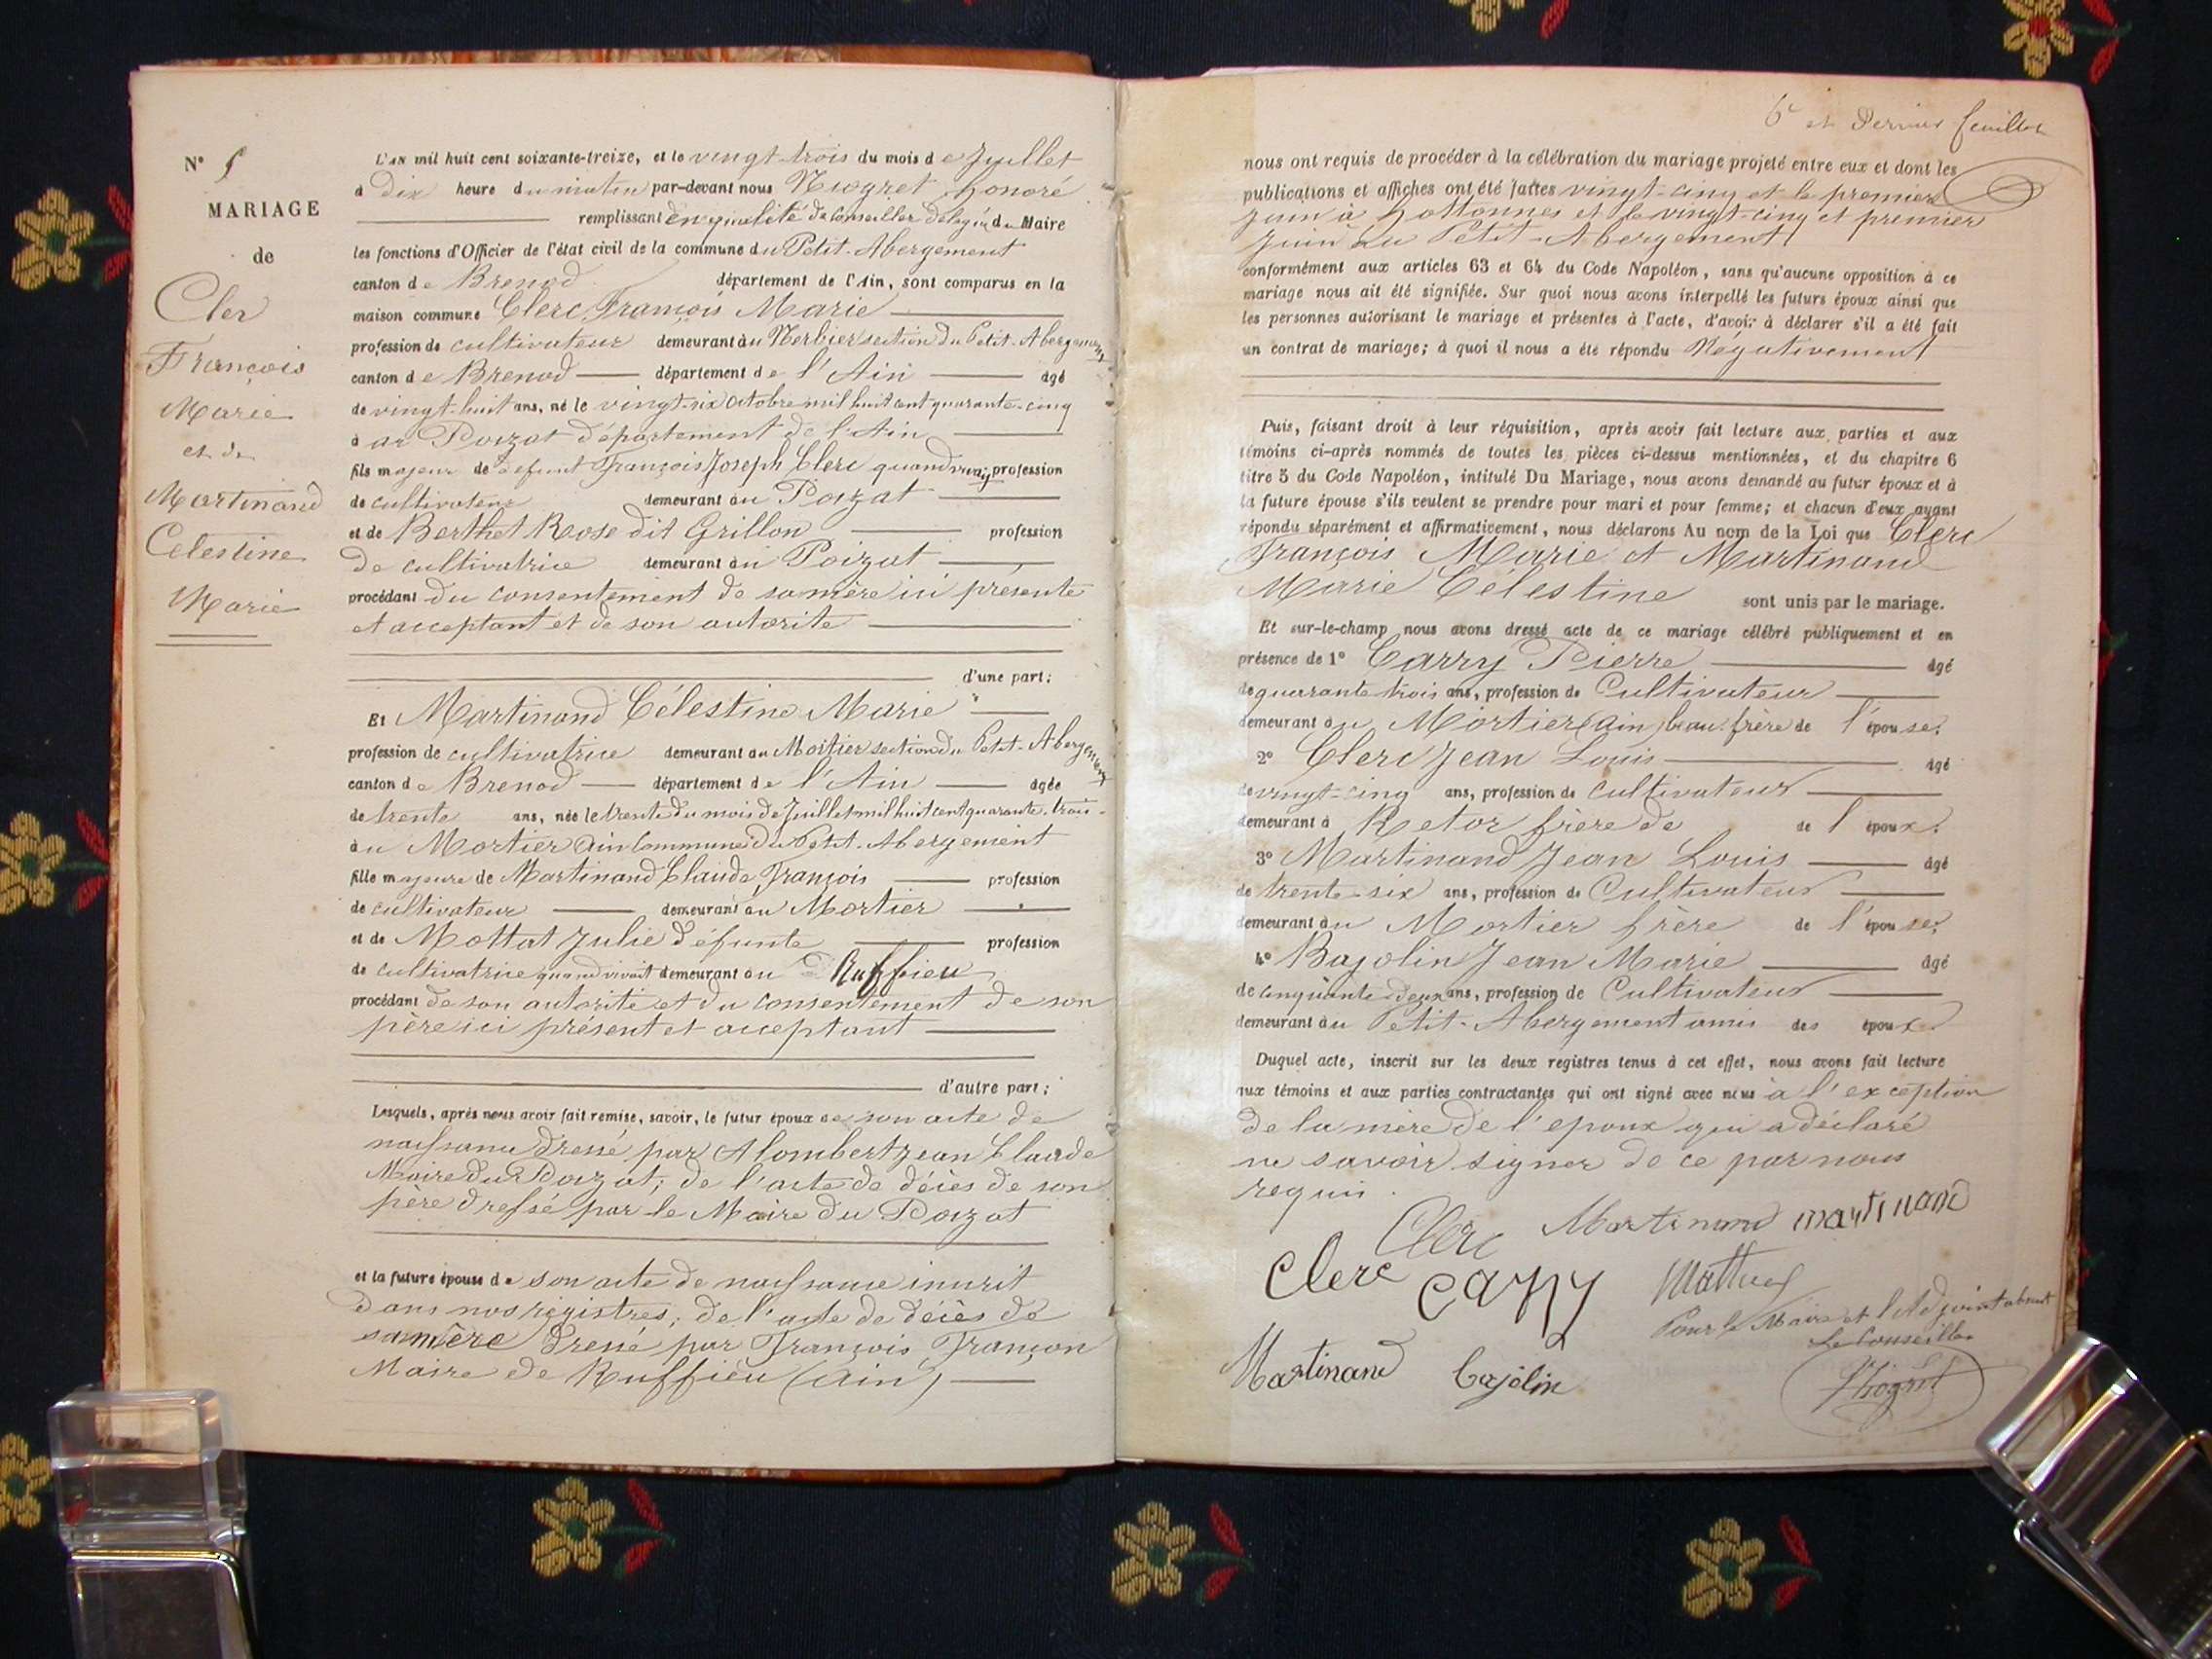 N° 5
MARIAGE
de
Cler
François
Marie
et de
Martinand
Celestine
Marie
L'AN mil huit cent soixante-treize, et le vingt trois du mois de Juillet
à Dix heure du matin par-devant nous Niogret honoré
remplissant en qualité de Conseiller délégué du Maire
les fonctions d'Officier de l'état civil de la commune du Petit-Abergement
canton de Brenod département de l'Ain, sont comparus en la
maison commune Clerc François Marie
profession de cultivateur demeurant au section du Petit-Abergement
canton de Brenod département de l'Ain âgé
de vingt-huit ans, né le vingt-six octobre mil huit cent quarante-cinq
à au Poizat département de l'Ain
fils majeur de defunt François Joseph Clerc quand vivait profession
de cultivateur demeurant au Poizat
et de Berthet Rose dit Grillon profession
De cultivatrice demeurant au Poizat
procédant du consentement de sa mère ici présente
et acceptant et de son autorite
d'une part;
Et Martinand Célestine Marie
profession de cultivatrice demeurant au Moitier section du Petit-Abergement
canton de Brenod département de l'Ain âgée
de trente ans, née le trente du mois de Juillet mil huit cent quarante-trois
au Mortier Ain Commune du Petit-Abergement
fille majeure de Martinand Claude François profession
de cultivateur demeurant au Mortier
et de Mottat Julie défunte profession
de cultivatrice quand vivait demeurant au Ruffieu
procédant de son autorité et du consentement de son
père ici présent et acceptant
d'autre part;
Lesquels, après nous avoir fait remise, savoir, le futur époux de son acte de
naissance dressé par Alombert Jean Claude
Maire du Poizat; de l'acte de décès de son
père dressé par le Maire du Poizat
et la future épouse de son acte de naissance inscrit
dans nos registres; de l'acte de décès de
sa mère dressé par François Françon
Maire de Ruffieu (Ain)
6e et Dernier feuillet
nous ont requis de procéder à la célébration du mariage projeté entre eux et dont les
publications et affiches ont été faites vingt-cinq et le premier
Juin à hottonnes et le vingt-cinq et premier
Juin au Petit-Abergement
conformément aux articles 63 et 64 du Code Napoléon, sans qu'aucune opposition à ce
mariage nous ait été signifiée. Sur quoi nous avons interpellé les futurs époux ainsi que
les personnes autorisant le mariage et présentes à l'acte, d'avoir à déclarer s'il a été fait
un contrat de mariage; à quoi il nous a été répondu Négativement
Puis, faisant droit à leur réquisition, après avoir fait lecture aux parties et aux
témoins ci-après nommés de toutes les pièces ci-dessus mentionnées, et du chapitre 6
titre 5 du Code Napoléon, intitulé Du Mariage, nous avons demandé au futur époux et à
la future épouse s'ils veulent se prendre pour mari et pour femme; et chacun d'eux ayant
répondu séparément et affirmativement, nous déclarons Au nom de la Loi que Clerc
François Marie et Martinand
Marie Célestine sont unis par le mariage.
Et sur-le-champ nous avons dressé acte de ce mariage célébré publiquement et en
présence de 1° Carry Pierre âgé
de quarante-trois ans, profession de Cultivateur
demeurant au Mortier (Ain) beau-frère de l'épouse.
2° Clerc Jean Louis âgé
de vingt-cinq ans, profession de cultivateur
demeurant à Retor frère de de l'époux.
3° Martinand Jean Louis âgé
de trente-six ans, profession de Cultivateur
demeurant au Mortier frère de l'épouse.
4° Bajolin Jean Marie âgé
de cinquante-deux ans, profession de Cultivateur
demeurant au Petit-Abergement amis des époux.
Duquel acte, inscrit sur les deux registres tenus à cet effet, nous avons fait lecture
aux témoins et aux parties contractantes qui ont signé avec nous à l'exception
de la mère de l'epoux qui a déclaré
ne savoir signer de ce par nous
requis.
Clerc Martinand martinand
Clerc carry
Pour le Maire et l'Adjoint absent
Le Conseiller
Martinand Bajolin Niogret